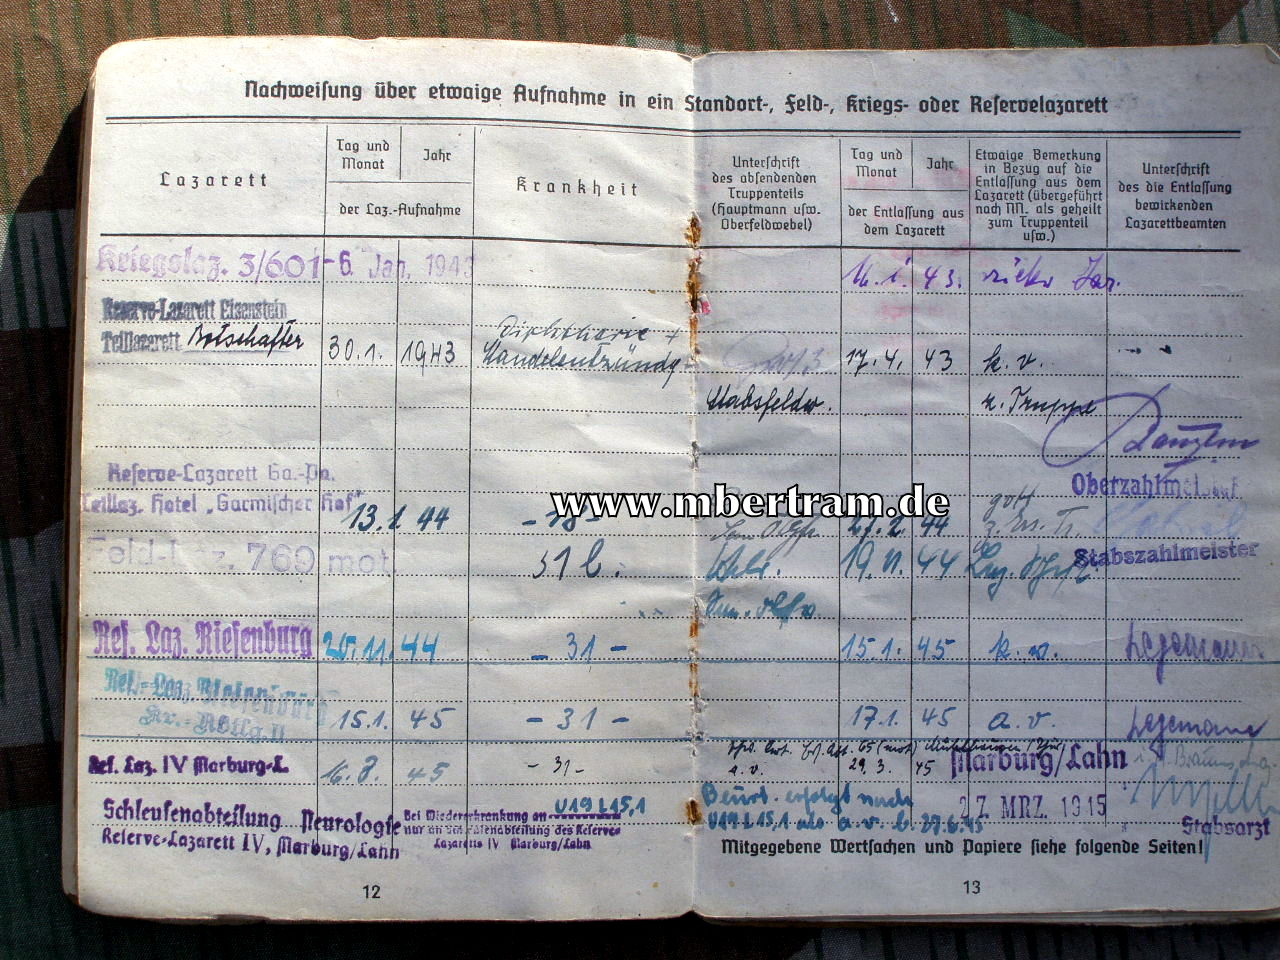 Nachweisung über etwaige Aufnahme in ein Standort-, Feld-, Kriegs- oder Reservelazarett
Lazarett
Tag und Monat
Jahr
der Laz.-Aufnahme
Krankheit
Unterschrift
des absendenden
Truppenteils
(Hauptmann usw.
Oberfeldwebel)
Tag und Monat
Jahr
der Entlassung aus
dem Lazarett
Etwaige Bemerkung
in Bezug auf die
Entlassung aus dem
Lazarett (übergeführt
nach NN. als geheilt
zum Truppenteil
usw.)
Unterschrift
des die Entlassung
bewirkenden
Lazarettbeamten
Kriegslaz. 3/601 - 6. Jan. 1943 43.
Reserve-Lazarett Eisenstein
Teillazarett Botschafter 30.1. 1943 Diphtherie + Mandelentzündg. 17.4. 43 k.v.
Stabsfeldw. z. Truppe
Oberzahlmeister
Reserve-Lazarett Ga.-Pa.
Teillaz. Hotel „Garmischer Hof" 13.1. 44 - 18 - 27.2. 44
www.mbertram.de
Feld-Laz. 769 mot 31 b. 19.11. 44
Stabszahlmeister
Res. Laz. Riesenburg 20.11. 44 - 31 - 15.1. 45 k.v. Legemann
Res.-Laz. Riesenburg
15.1. 45 - 31 - 17.1. 45 a.v. Legemann
Res. Laz. IV Marburg-L. 45 - 31 - 29.3. 45 Marburg/Lahn
a.v.
27. MRZ. 1945
Stabsarzt
Schleusenabteilung Neurologie
Reserve-Lazarett IV, Marburg/Lahn
Bei Wiedererkrankung an U19 L15,1
nur an Schleusenabteilung des Reserve-
Lazaretts IV Marburg/Lahn
Beurt. erfolgt nach
U19 L15,1 als a.v. b. 27.6.45
Mitgegebene Wertsachen und Papiere siehe folgende Seiten!
12
13